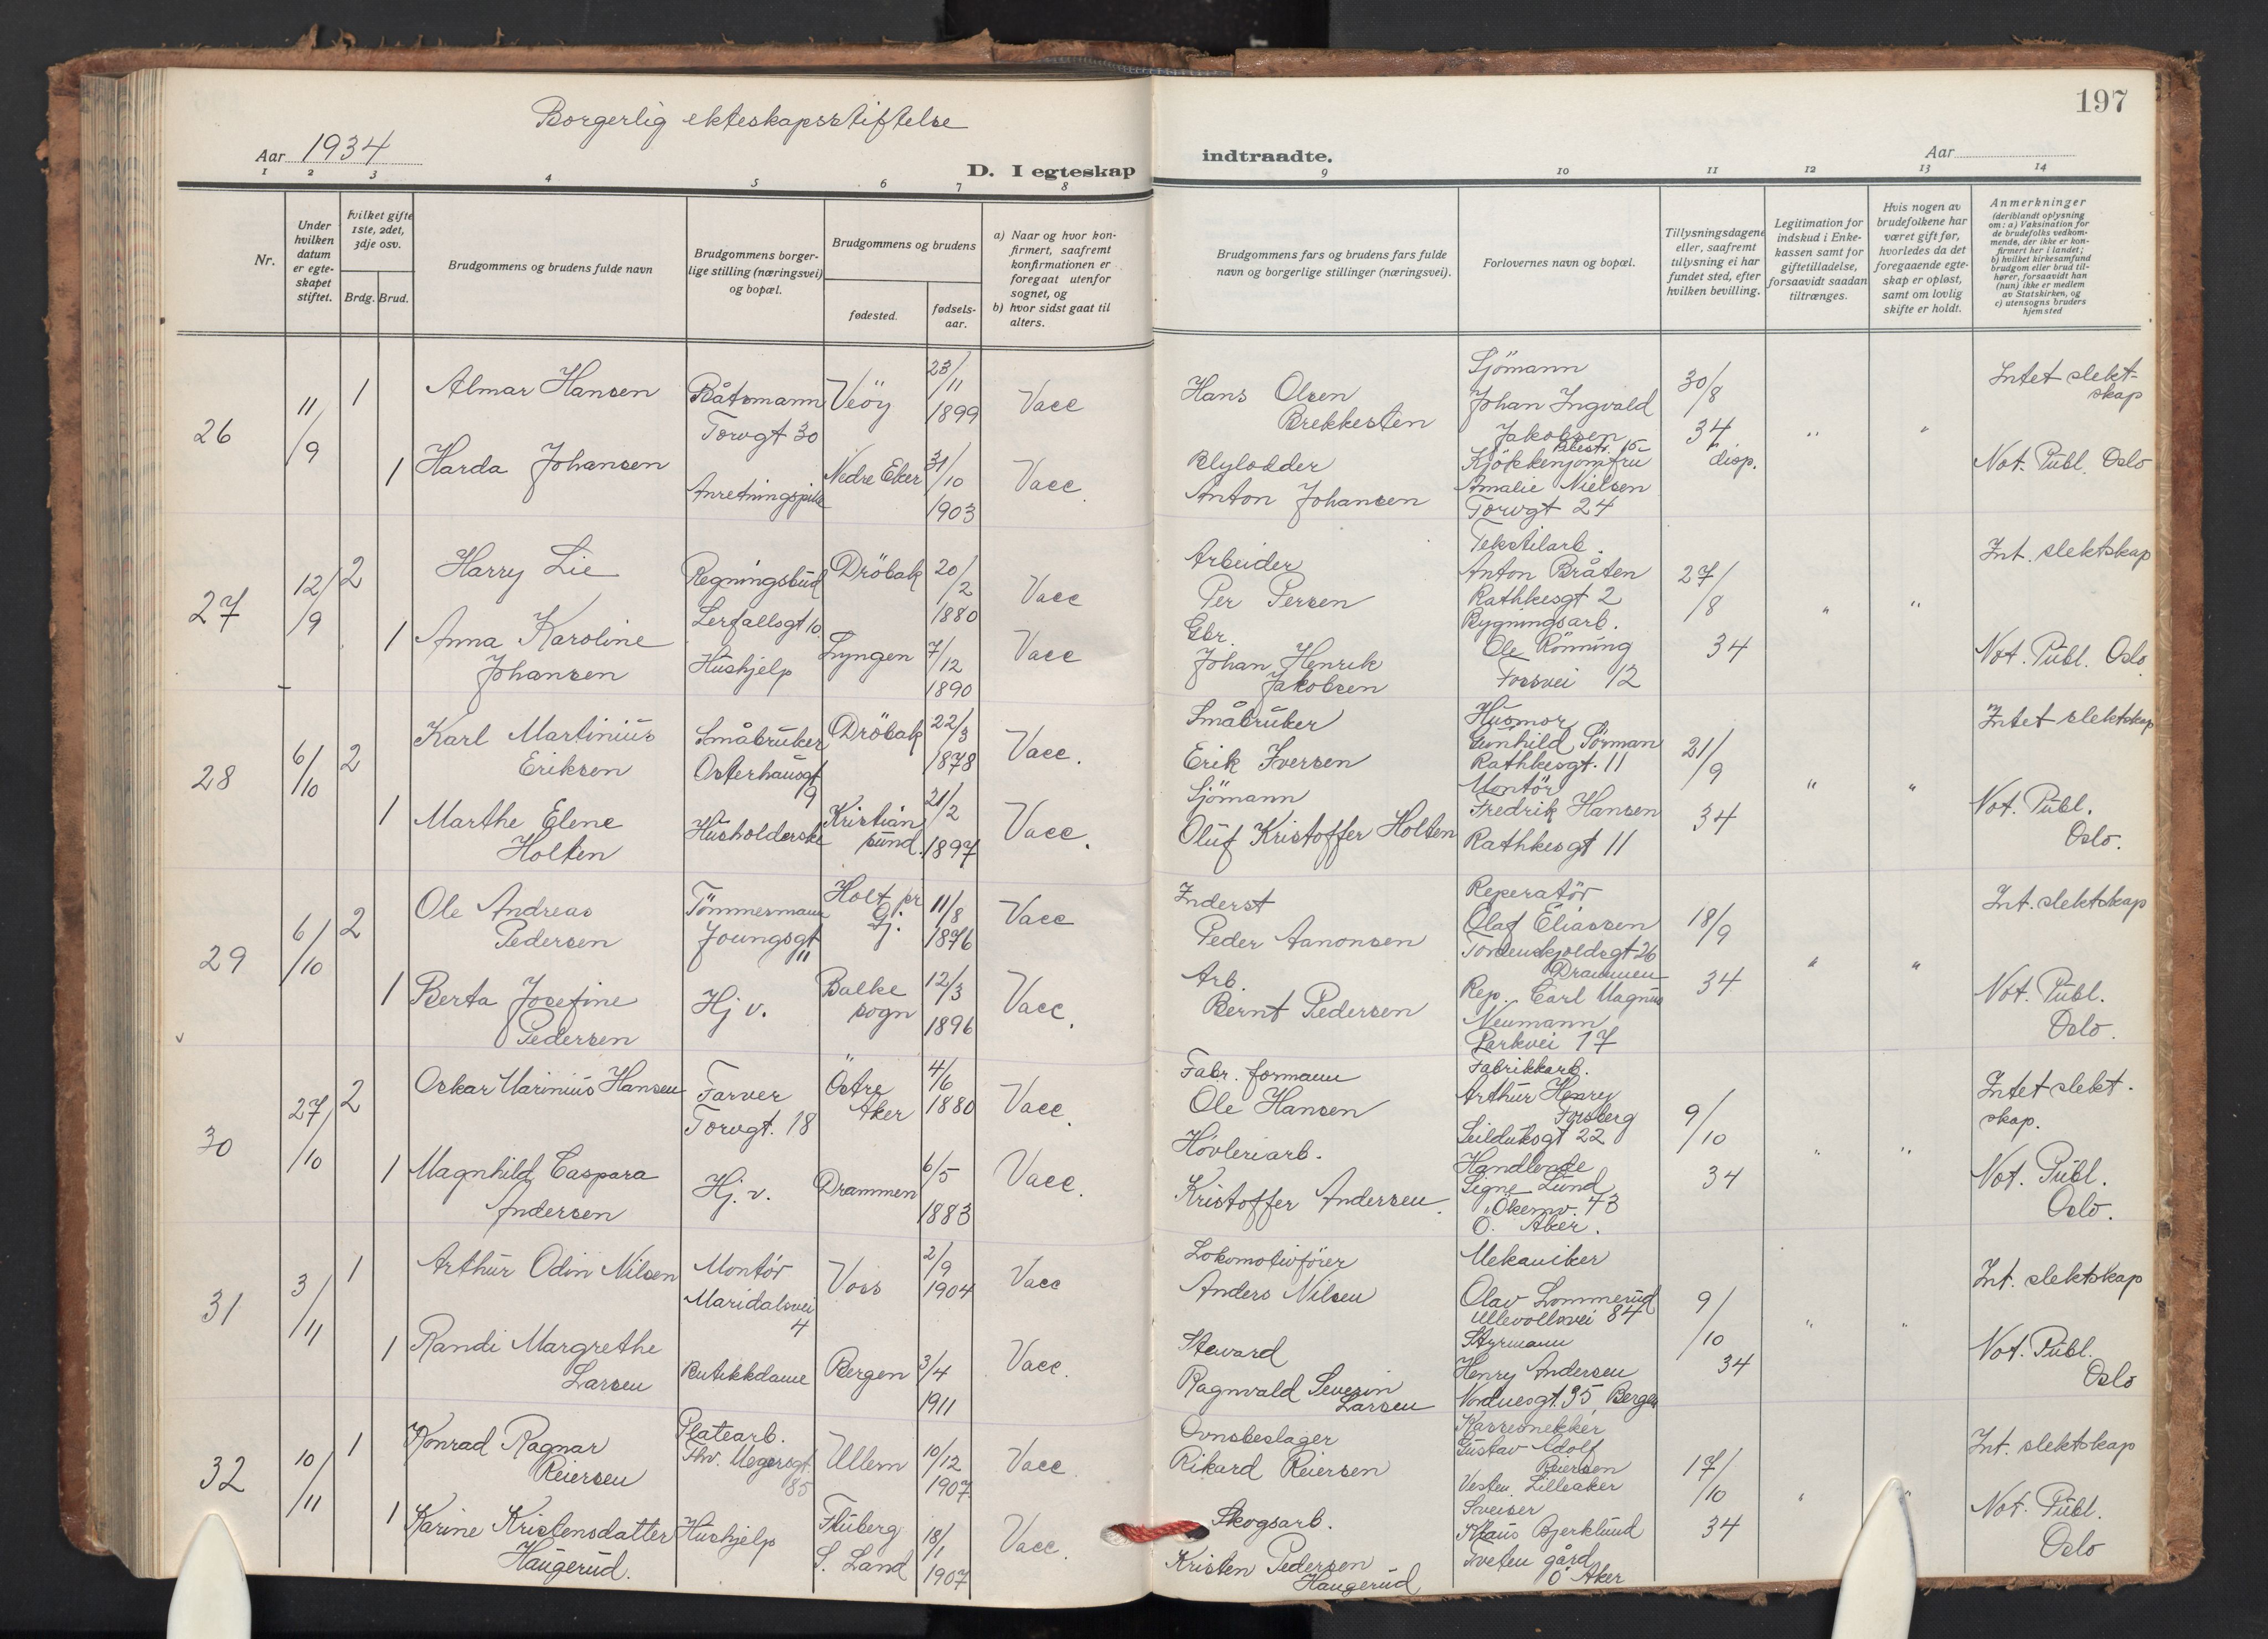 197
Borgerlig ekteskapsstiftelse
Aar 1934
D. I egteskap indtraadte.
Aar
1 2 3 4 5 6 7 8 9 10 11 12 13 14
Nr.
Under hvilken datum er egteskapet stiftet.
hvilket gifte 1ste, 2det, 3dje osv.
Brdg. Brud.
Brudgommens og brudens fulde navn
Brudgommens borgerlige stilling (næringsvei) og bopæl.
Brudgommens og brudens
fødested.
fødselsaar.
a) Naar og hvor konfirmert, saafremt konfirmationen er foregaat utenfor sognet, og
b) hvor sidst gaat til alters.
Brudgommens fars og brudens fars fulde navn og borgerlige stillinger (næringsvei).
Forlovernes navn og bopæl.
Tillysningsdagene eller, saafremt tillysning ei har fundet sted, efter hvilken bevilling.
Legitimation for indskud i Enkekassen samt for giftetilladelse, forsaavidt saadan tiltrænges.
Hvis nogen av brudefolkene har været gift før, hvorledes da det foregaaende egteskap er opløst, samt om lovlig skifte er holdt.
Anmerkninger
(deriblandt oplysning om: a) Vaksination for de brudefolks vedkommende, der ikke er konfirmert her i landet;
b) hvilket kirkesamfund brudgom eller brud tilhører, forsaavidt han (hun) ikke er medlem av Statskirken, og
c) utensogns bruders hjemsted
26
11/9
1
Almar Hansen
Båtsmann
Torvgt 30
Veöy
23/11
1899
Vacc
Hans Olsen
Brekkesten
Sjömann
Johan Ingvald
Jakobsen
30/8
34
disp.
"
"
Intet slekt-
skap
1
Harda Johansen
Anretningspike
Nedre Eker
31/10
1903
Vacc.
Blylodder
Anton Johansen
Kjökkenjomfru
Amalie Nielsen
Torvgt 24
Not. Publ. Oslo
27
12/9
2
Harry Lie
Regningsbud
Lerfallsgt 10
Dröbak
20/2
1880
Vacc
Arbeider
Per Persen
Tekstilarb.
Anton Bråten
Rathkesgt 2
27/8
34
"
"
Int. slektskap
1
Anna Karoline
Johansen
Hushjelp
Lyngen
7/12
1890
Vacc
Gbr.
Johan Henrik
Jakobsen
Bygningsarb.
Ole Rönning
Fossvei 12
Not. Publ. Oslo
28
6/10
2
Karl Martinius
Eriksen
Småbruker
Osterhausgt
9
Dröbak
22/3
1878
Vacc.
Småbruker
Erik Iversen
Husmor
Gunhild Sörman
Rathkesgt. 11
21/9
34
"
"
Intet slektskap
1
Marthe Elene
Holten
Husholderske
Kristian
sund.
21/2
1897
Vacc.
Sjömann
Oluf Kristoffer Holten
Montör
Fredrik Hansen
Rathkesgt 11
Not. Publ.
Oslo.
29
6/10
2
Ole Andreas
Pedersen
Tömmermann
Youngsgt
11
Holt pr
11/8
1876
Vacc
Inderst
Peder Aanonsen
Reperatör
Olaf Eliassen
Tordenskjoldsgt 26
Drammen
18/9
34
"
"
Int. slektskap
1
Berta Josefine
Pedersen
Hj. v.
Balke
sogn
12/3
1896
Vacc.
Arb.
Bernt Pedersen
Rep. Carl Magnus
Neumann
Parkvei 17
Not. Publ.
Oslo.
30
27/10
2
Oskar Marinius Hansen
Farver
Torvgt. 18
Östre
Aker
4/6
1880
Vacc.
Fabr. formann
Ole Hansen
Fabrikkarb.
Arthur Henry
Forsberg
Seilduksgt 22
9/10
34
"
"
Intet slekt-
skap.
1
Magnhild Caspara
Andersen
Hj. v.
Drammen
6/5
1883
Vacc.
Hövleriarb.
Kristoffer Andersen.
Handlende
Signe Lund
Ökernv. 43
Ö. Aker.
Not. Publ.
Oslo.
31
3/11
1
Arthur Odin Nilsen
Montör
Maridalsvei
4
Voss
2/9
1904
Vacc
Lokomotivförer
Anders Nilsen
Mekaniker
Olav Lommerud
Ullevollsvei 84
9/10
34
"
"
Int. slektskap
1
Randi Margrethe
Larsen
Butikkdame
Bergen
3/4
1911
Vacc.
Steward
Ragnvald Severin
Larsen
Styrmann
Henry Andersen
Nordnesgt. 35, Bergen
Not. Publ.
Oslo
32
10/11
1
Konrad Ragnar
Reiersen
Platearb.
Thv. Meyersgt.
85
Ullern
10/12
1907
Vacc.
Ovnsbeslager
Rikard Reiersen
Gustav Adolf
Reiersen
Lilleaker
17/10
34
"
"
Int. slektskap
1
Karine Kristensdatter
Haugerud.
Hushjelp
Fluberg
S. Land
18/1
1907
Vacc.
Skogsarb.
Kristen Pedersen
Haugerud
Sveiser
Bjerklund
Tveten gård
Ö Aker
Not. Publ.
Oslo